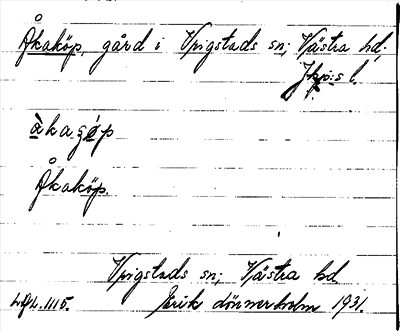 Åkaköp, gård i Vrigstads sn; Västra hd;
Jkp:s l.
àkaǥóp
Åkaköp.
Vrigstads sn; Västra hd.
Erik Lönnerholm 1931.